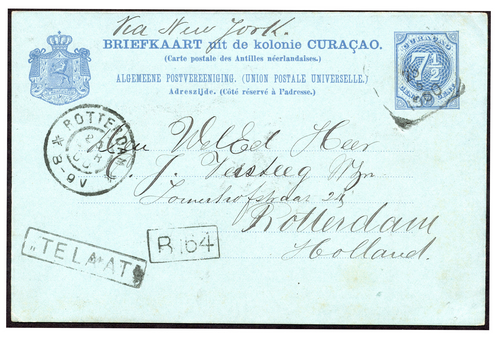 Via New York.
BRIEFKAART uit de kolonie CURAÇAO.
(Carte postale des Antilles néerlandaises.)
ALGEMEENE POSTVEREENIGING. (UNION POSTALE UNIVERSELLE.)
Adreszijde. (Côté réservé à l'adresse.)
CURAÇAO
7½
ROTTERDAM
8-9V
Den WelEd Heer
J. Versteeg Wzn
Rotterdam
Holland.
"TE LAAT"
R.164